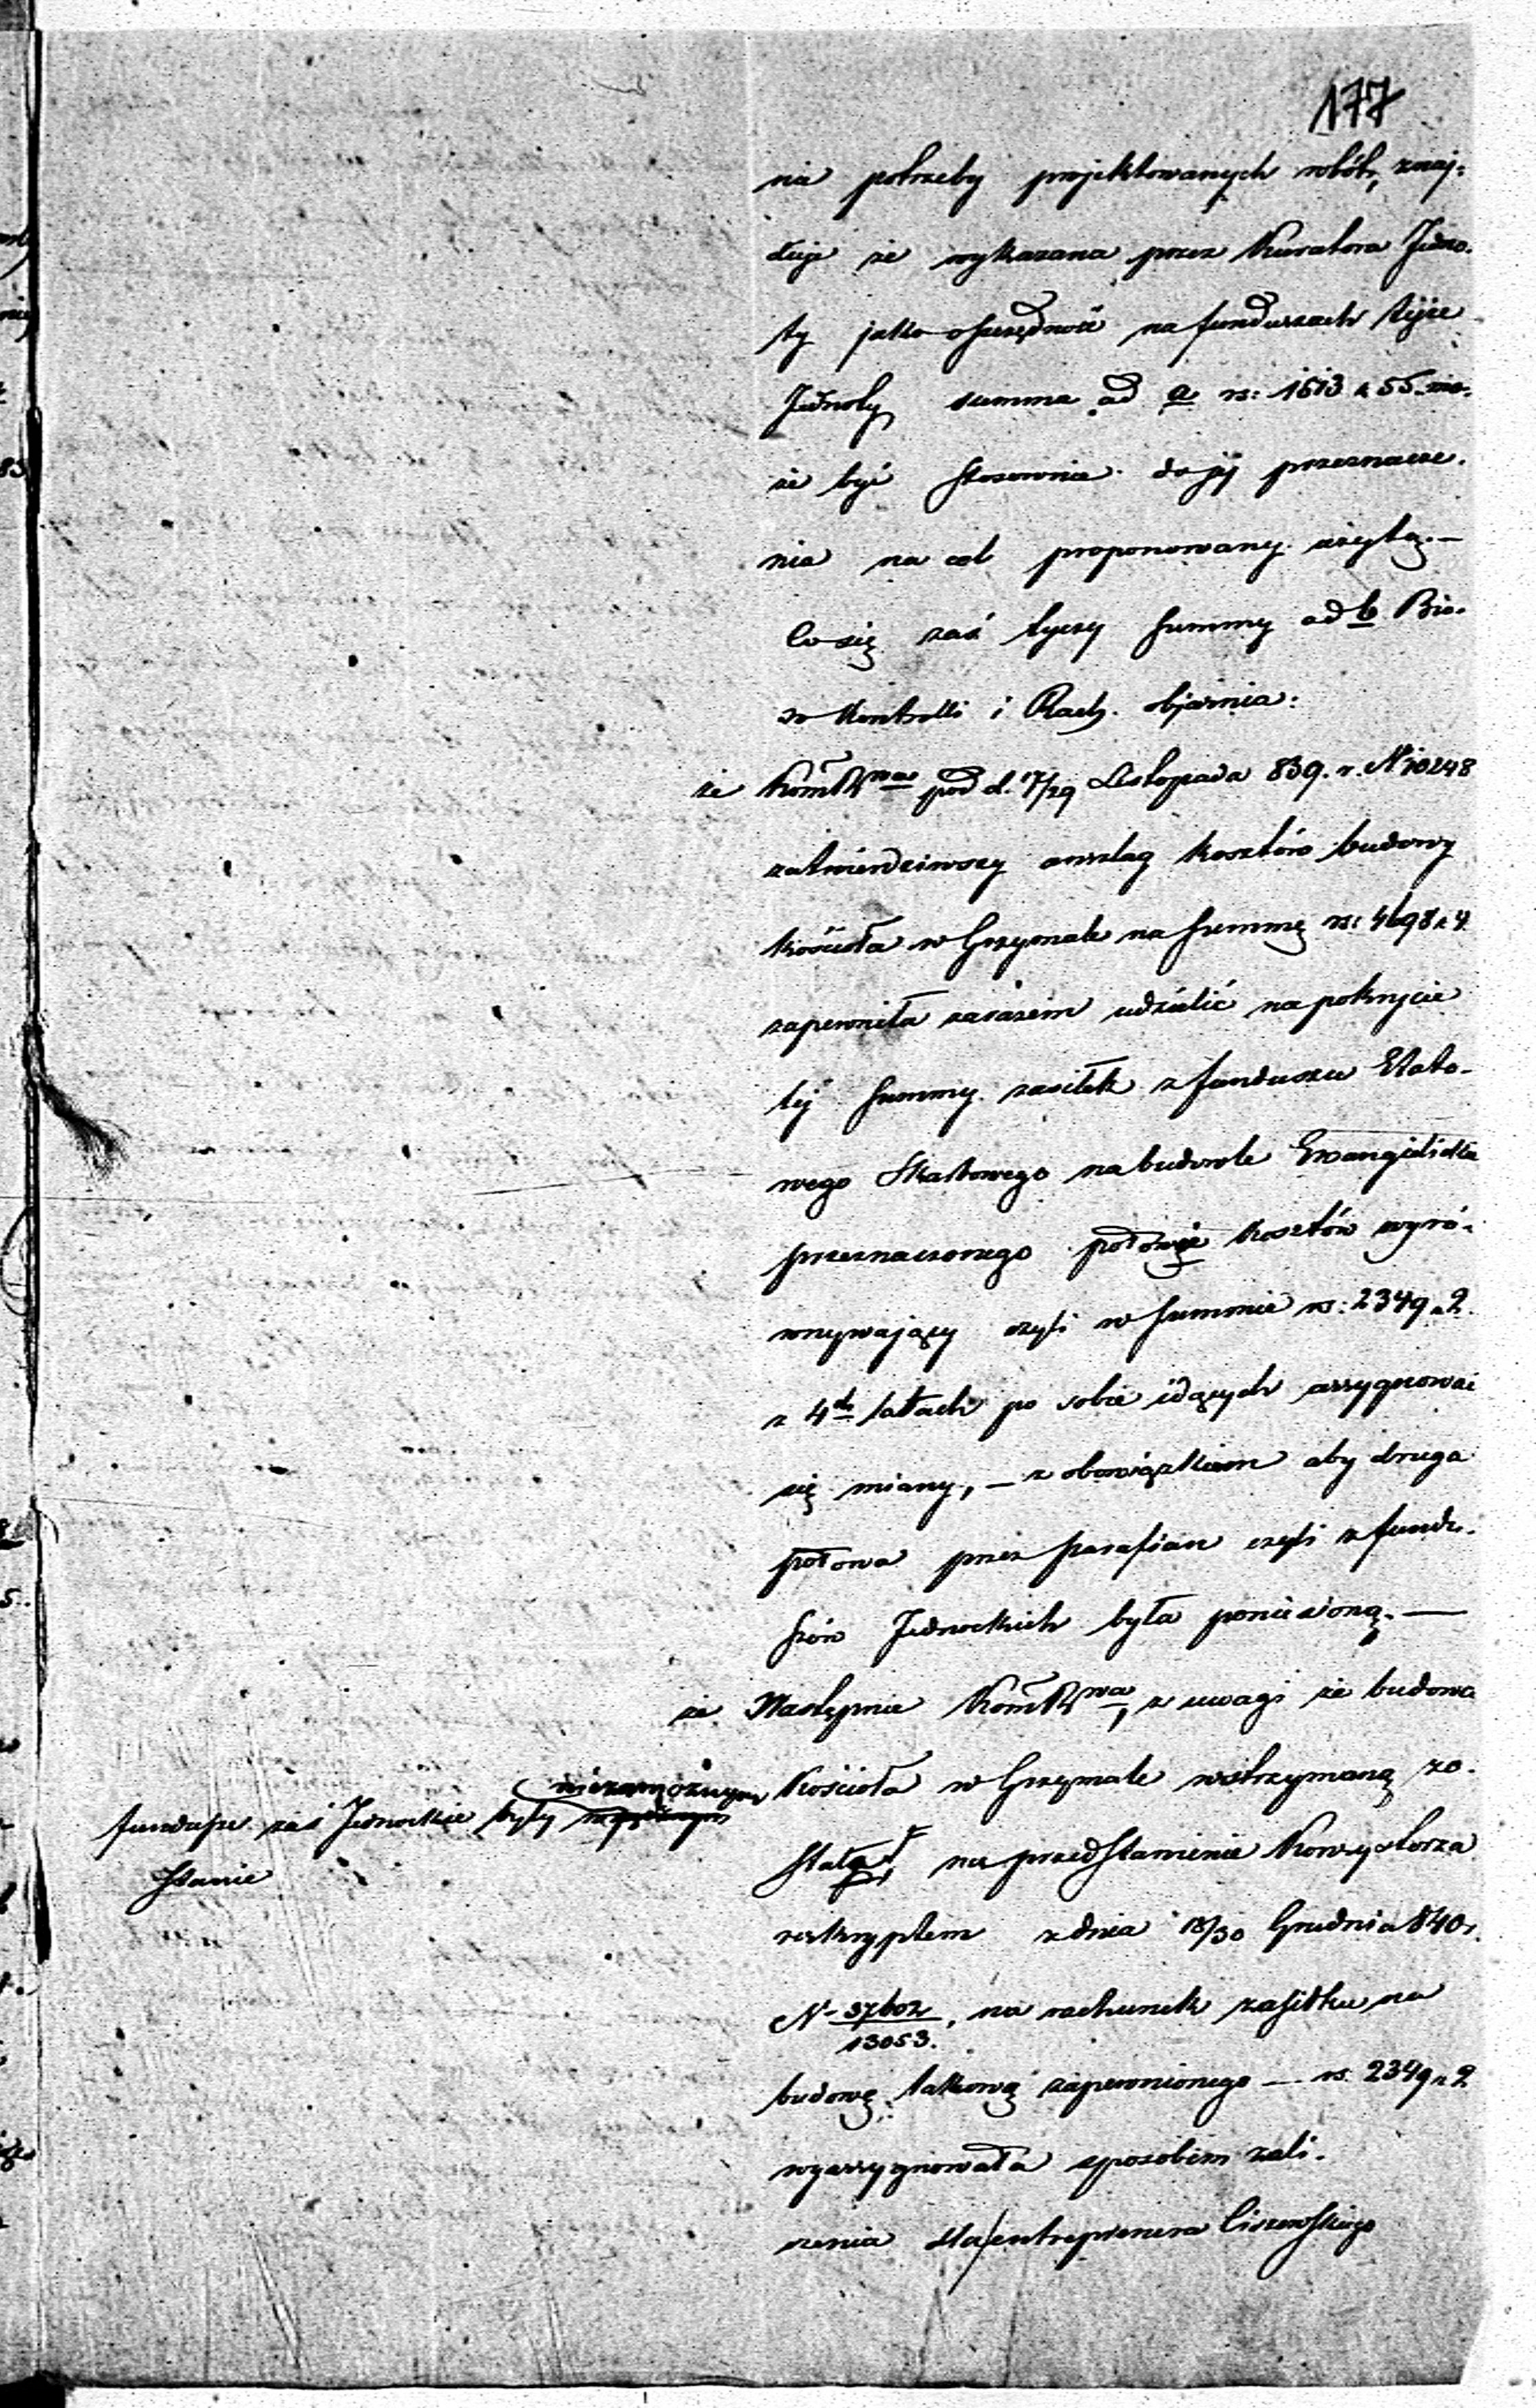 177
nia potrzeby projektowanych robót, znaj-
duje że wykazana przez Kuratora Jedno-
ty jako oszczędność na funduszach tejże
Jednoty summa ad a rs: 1513 k 55. mo-
że być stosownie do jéj przeznacze-
nia na cel proponowany użytą. —
Co się zaś tyczy summy ad b Biu-
ro Kontrolli i Rach. objaśnia:
że KomRwa pod d. 17/29 Listopada 839. r. N 10248
zatwierdziwszy anszlag kosztów budowy
kościoła w Grzymale na summę rs: 4698 k 4
zapewniła zarazem udzielić na pokrycie
téj summy zasiłek z funduszu Etato-
wego Skarbowego na budowle Ewangielickie
przeznaczonego połowie kosztów wyró-
wnywający czyli w summie rs: 2349 k 2.
z 4ch latach po sobie idących assygnować
się miany, — z obowiązkiem aby druga
połowa przez parafian czyli z fundu-
szów Jednockich była poniesioną. —
że Następnie KomRwa, z uwagi że budowa
Kościoła w Grzymale wstrzymaną zo-
niezamożnym
fundusze zaś Jednockie były
stanie
stała, na przedstawienie Konsystorza
reskryptem z dnia 18/30 Grudnia 840 r.
N 37602/13053., na rachunek zasiłku na
budowę takową zapewnionego — rs. 2349 k 2
wyassygnowała sposobem zali-
czenia dla entreprenera Ciszewskiego